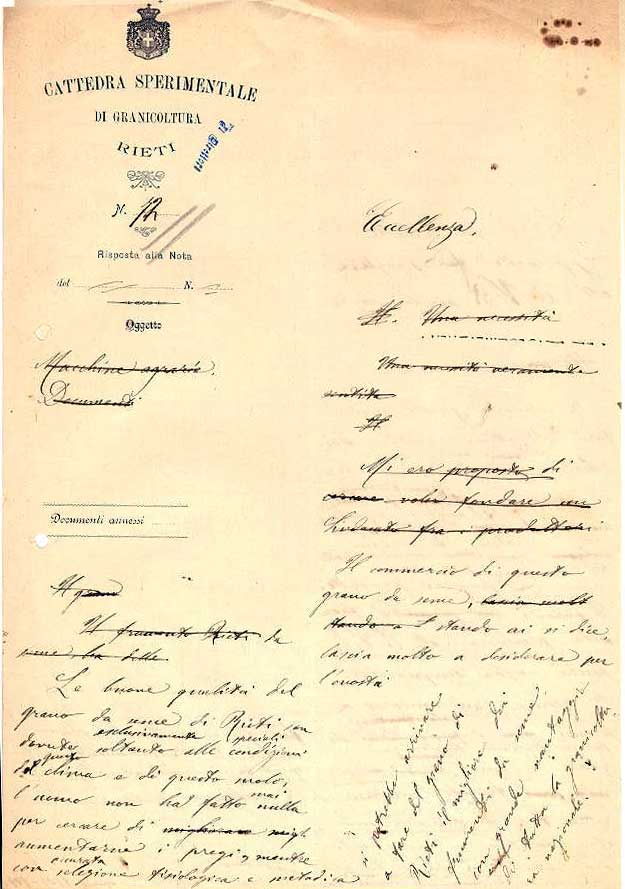 CATTEDRA SPERIMENTALE
DI GRANICOLTURA
RIETI
N. 12
Risposta alla Nota
del N.
Oggetto
Macchine agrarie.
Documenti
Documenti annessi
Il grano
Il frumento Rieti da
seme ha delle
Le buone qualità del
grano da seme di Rieti son
esclusivamente speciali
dovute soltanto alle condizioni
del clima e di questo
mai
l'uomo non ha fatto nulla
per cercare di
aumentarne i pregi mentre
accurata
con selezione fisiologica e metodica
Eccellenza,
Una necessità
Una necessità veramente
sentita
Il
Mi ero proposto di
voler fondare un
Sindacato fra i produttori
Il commercio di questo
grano da seme, lascia molt
stando a stando ai si dice,
lascia molto a desiderare per
l'onestà
si potrebbe arrivare
a fare del grano di
Rieti il migliore dei
frumenti da seme
con grande vantaggio
di tutta la granicoltu
ra nazionale.